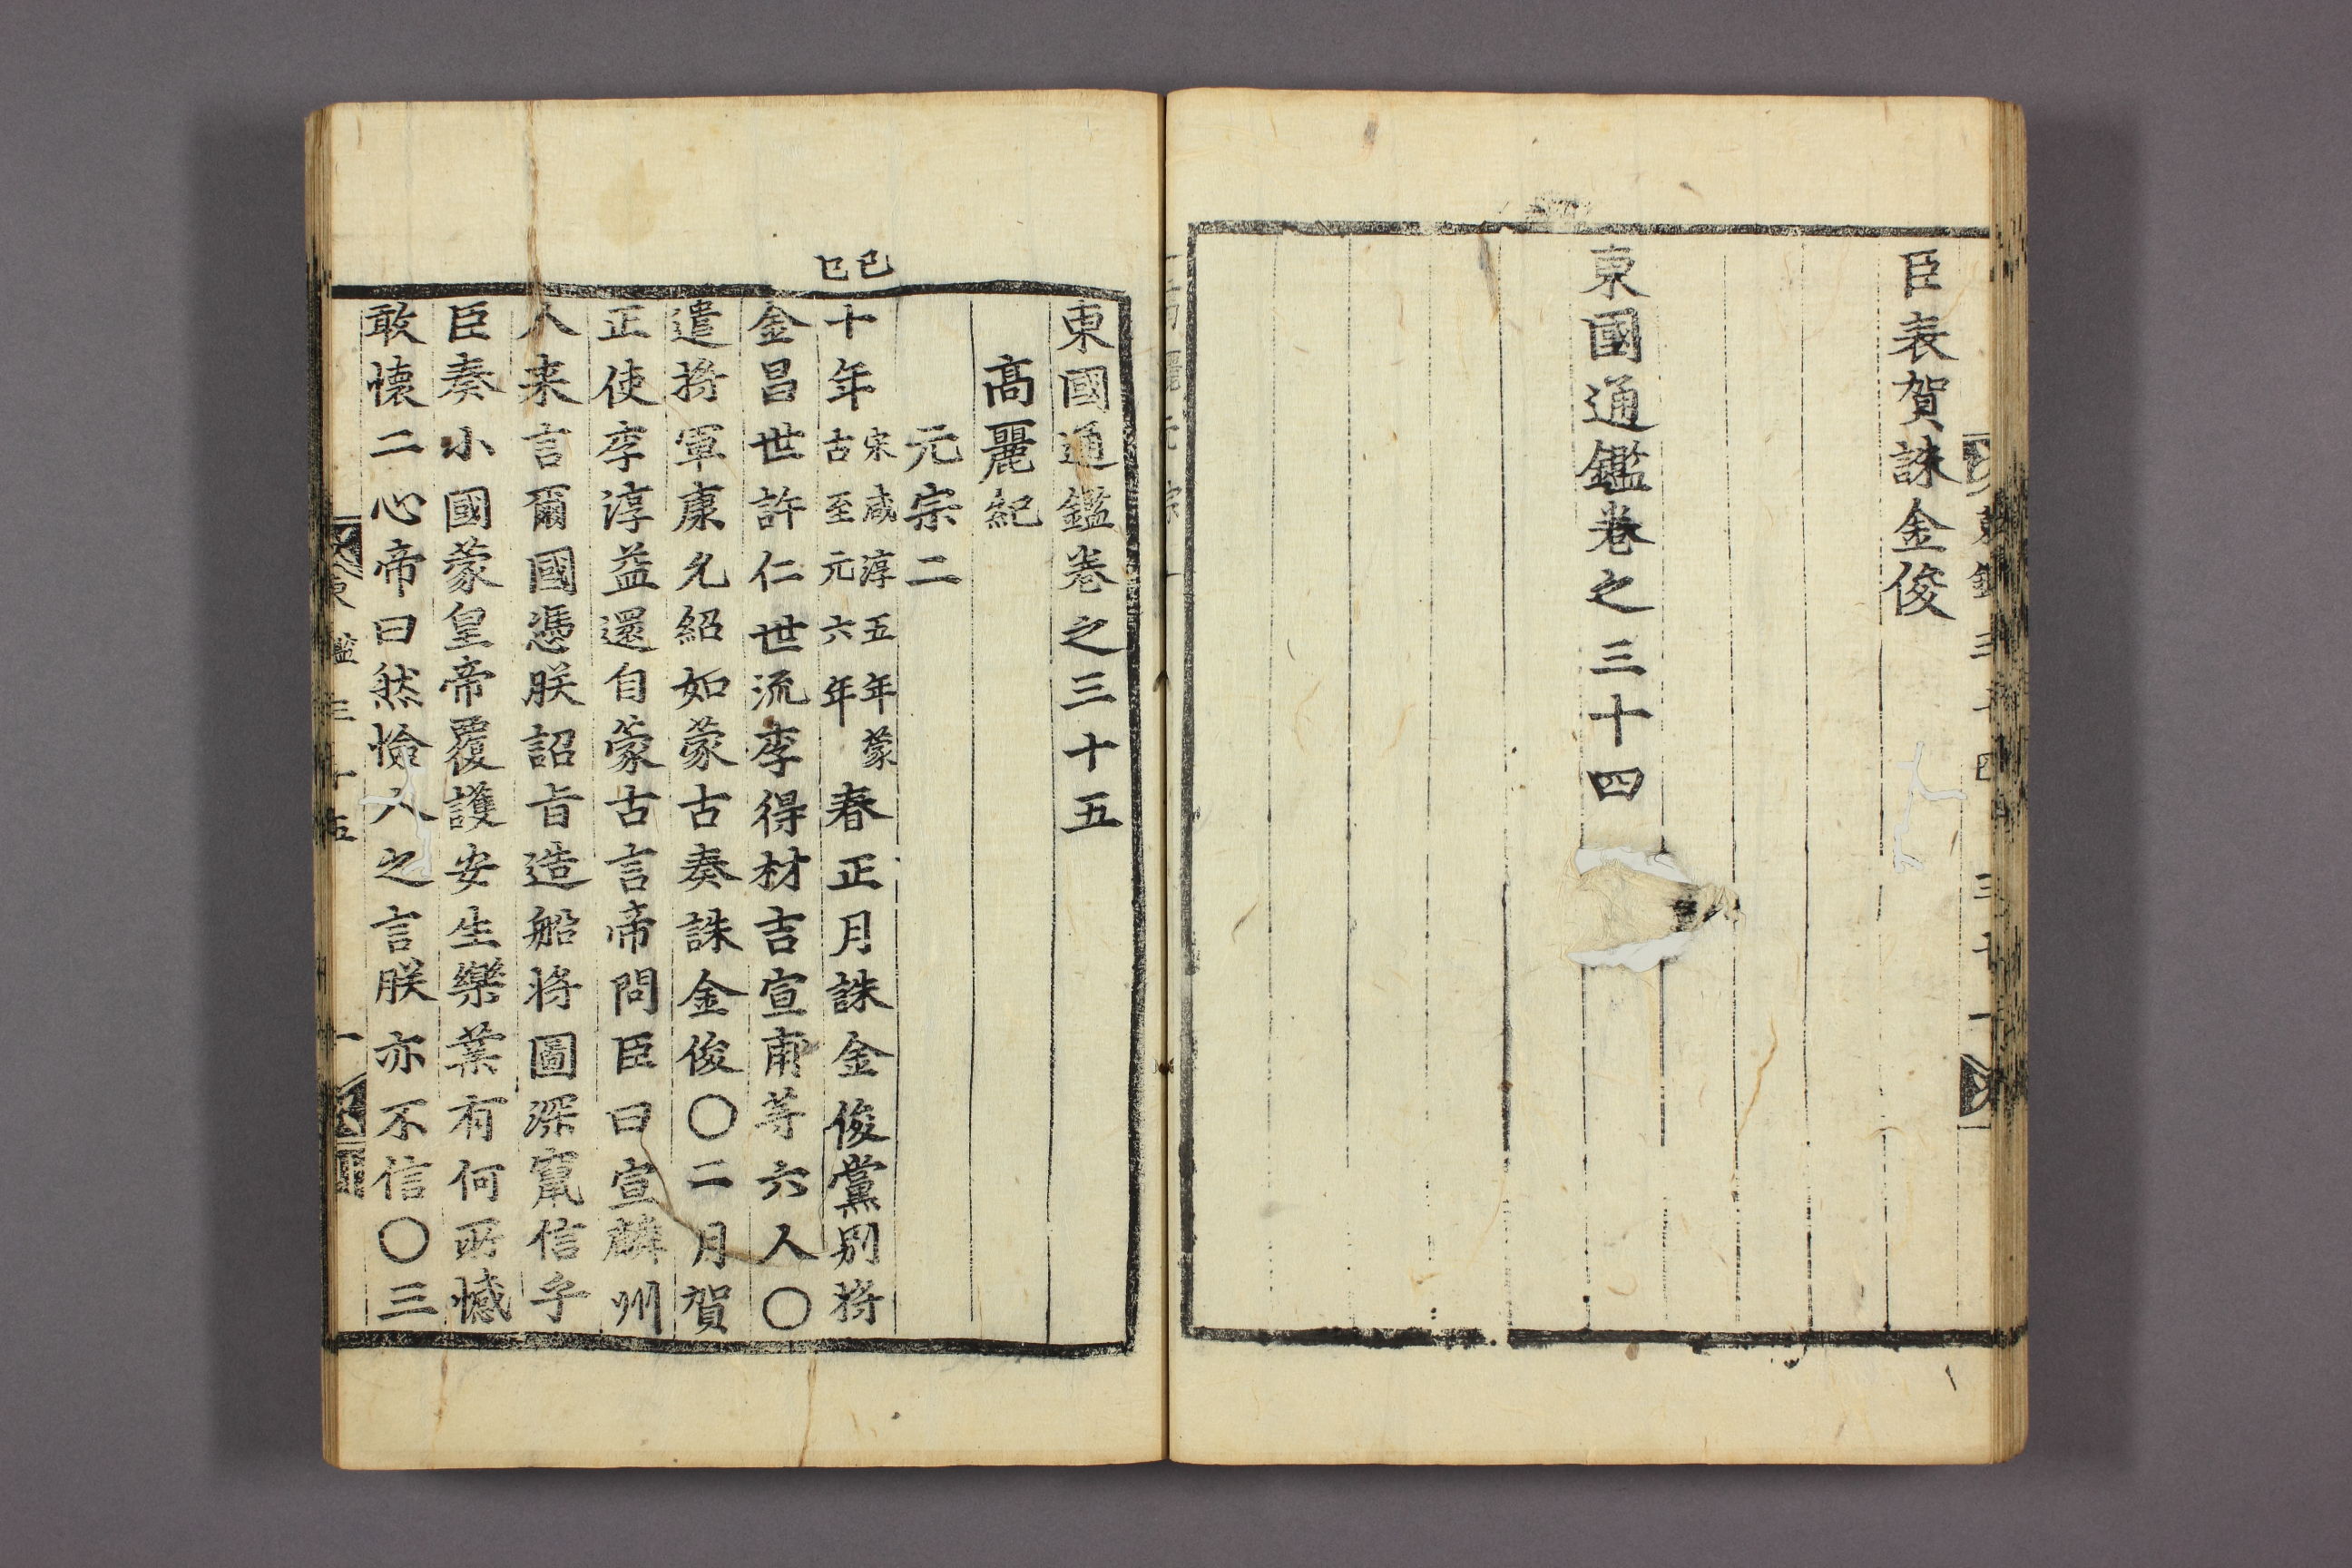 臣表賀誅金俊
東國通鑑卷之三十四
東國通鑑卷之三十五
高麗紀
元宗二
己巳
十年宋咸淳五年蒙古至元六年春正月誅金俊黨別將
金昌世許仁世流李得材吉宣甫等六人〇
遣將軍康允紹如蒙古奏誅金俊〇二月賀
正使李淳益還自蒙古言帝問臣曰宣麟州
人来言爾國憑朕詔旨造船将圖深竄信乎
臣奏小國蒙皇帝覆護安生樂業有何所憾
敢懷二心帝曰然憸人之言朕亦不信〇三
東鑑三十五 一